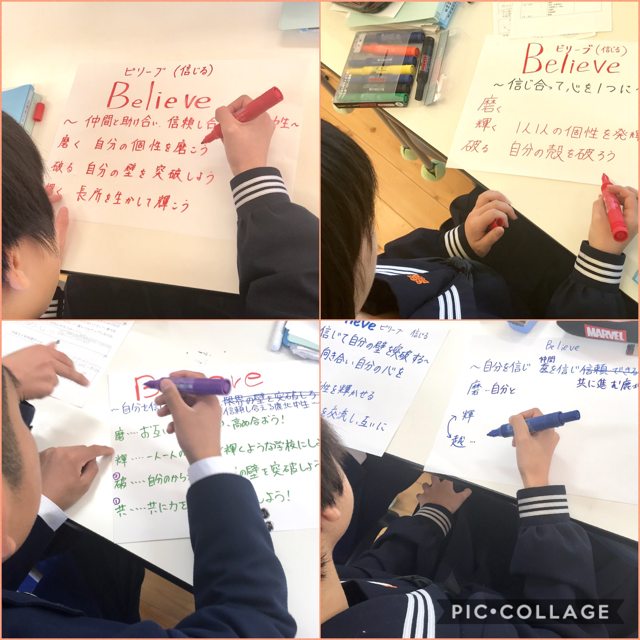 ビリーブ(信じる)
Believe
～仲間と助け合い、信頼し合
磨く 自分の個性を磨こう
破る 自分の壁を突破しよう
く 長所を生かして輝こう
ビリーブ(信じる)
Believe
～信じ合って心を1つに～
磨く
輝く 1人1人の個性を発揮
破る 自分の殻を破ろう
Be e
～自分を信 限界の壁を突破しろ
信頼し合える
磨……お互い 高め合おう!
輝……一人一人の 輝くような学校にし
② ……自分のから の壁を突破しよう!
① 共……共に力を しよう!
ieve ビリーブ 信じる
信じて自分の壁を突破する～
向き合い自分の心を
性を輝かせる
を交流し互いに
MARVEL
Believe
～自分を信じ 仲間を信じ信頼できる
共に進む
磨…自分と
輝
越…
PIC•COLLAGE